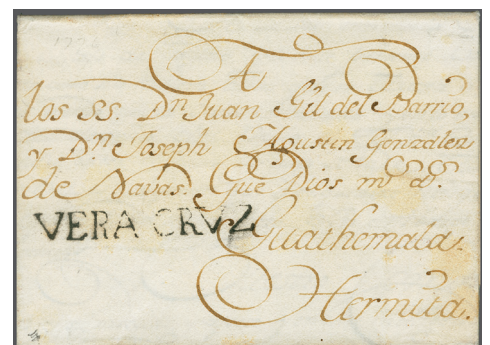 A
los SS. Dⁿ Juan Gil del Barrio,
y Dⁿ Joseph Agustin Gonzalez
de Navas. Gue Dios mˢ aˢ.
VERA CRVZ
Guathemala.
Hermita.